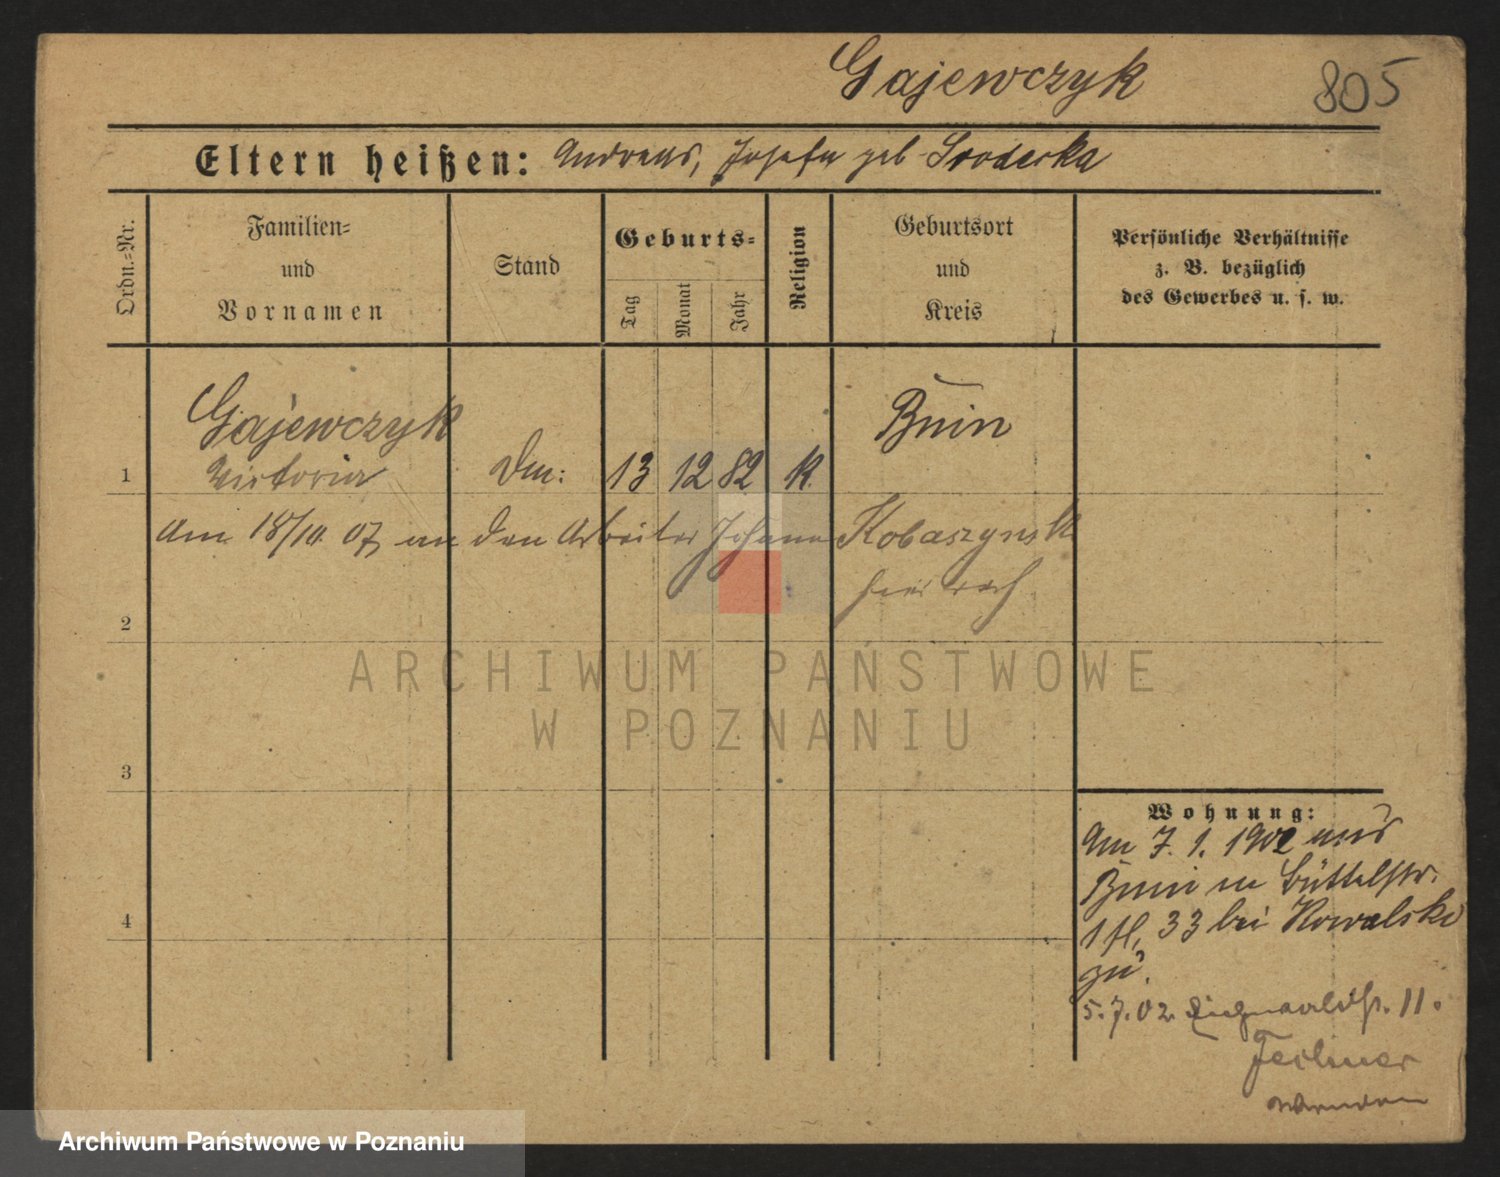 Gajewczyk 805
Eltern heißen: Andreas, Josefa geb Sroderka
Ordn.-Nr.
Familien-
und
Vornamen
Stand
Geburts-
Tag
Monat
Jahr
Religion
Geburtsort
und
Kreis
Persönliche Verhältnisse
z. B. bezüglich
des Gewerbes u. s. w.
Gajewczyk Bnin
1 Victoria 13 12 82 K.
Am 18/10. 07 an den Arbeiter Johann Kobaszynsk
2
ARCHIWUM PAŃSTWOWE
W POZNANIU
3
Wohnung:
Am 7. 1. 1902 aus
Bnin in Büttelstr.
33 bei Kowalski
zu.
5. 7. 02 11.
4
Archiwum Państwowe w Poznaniu